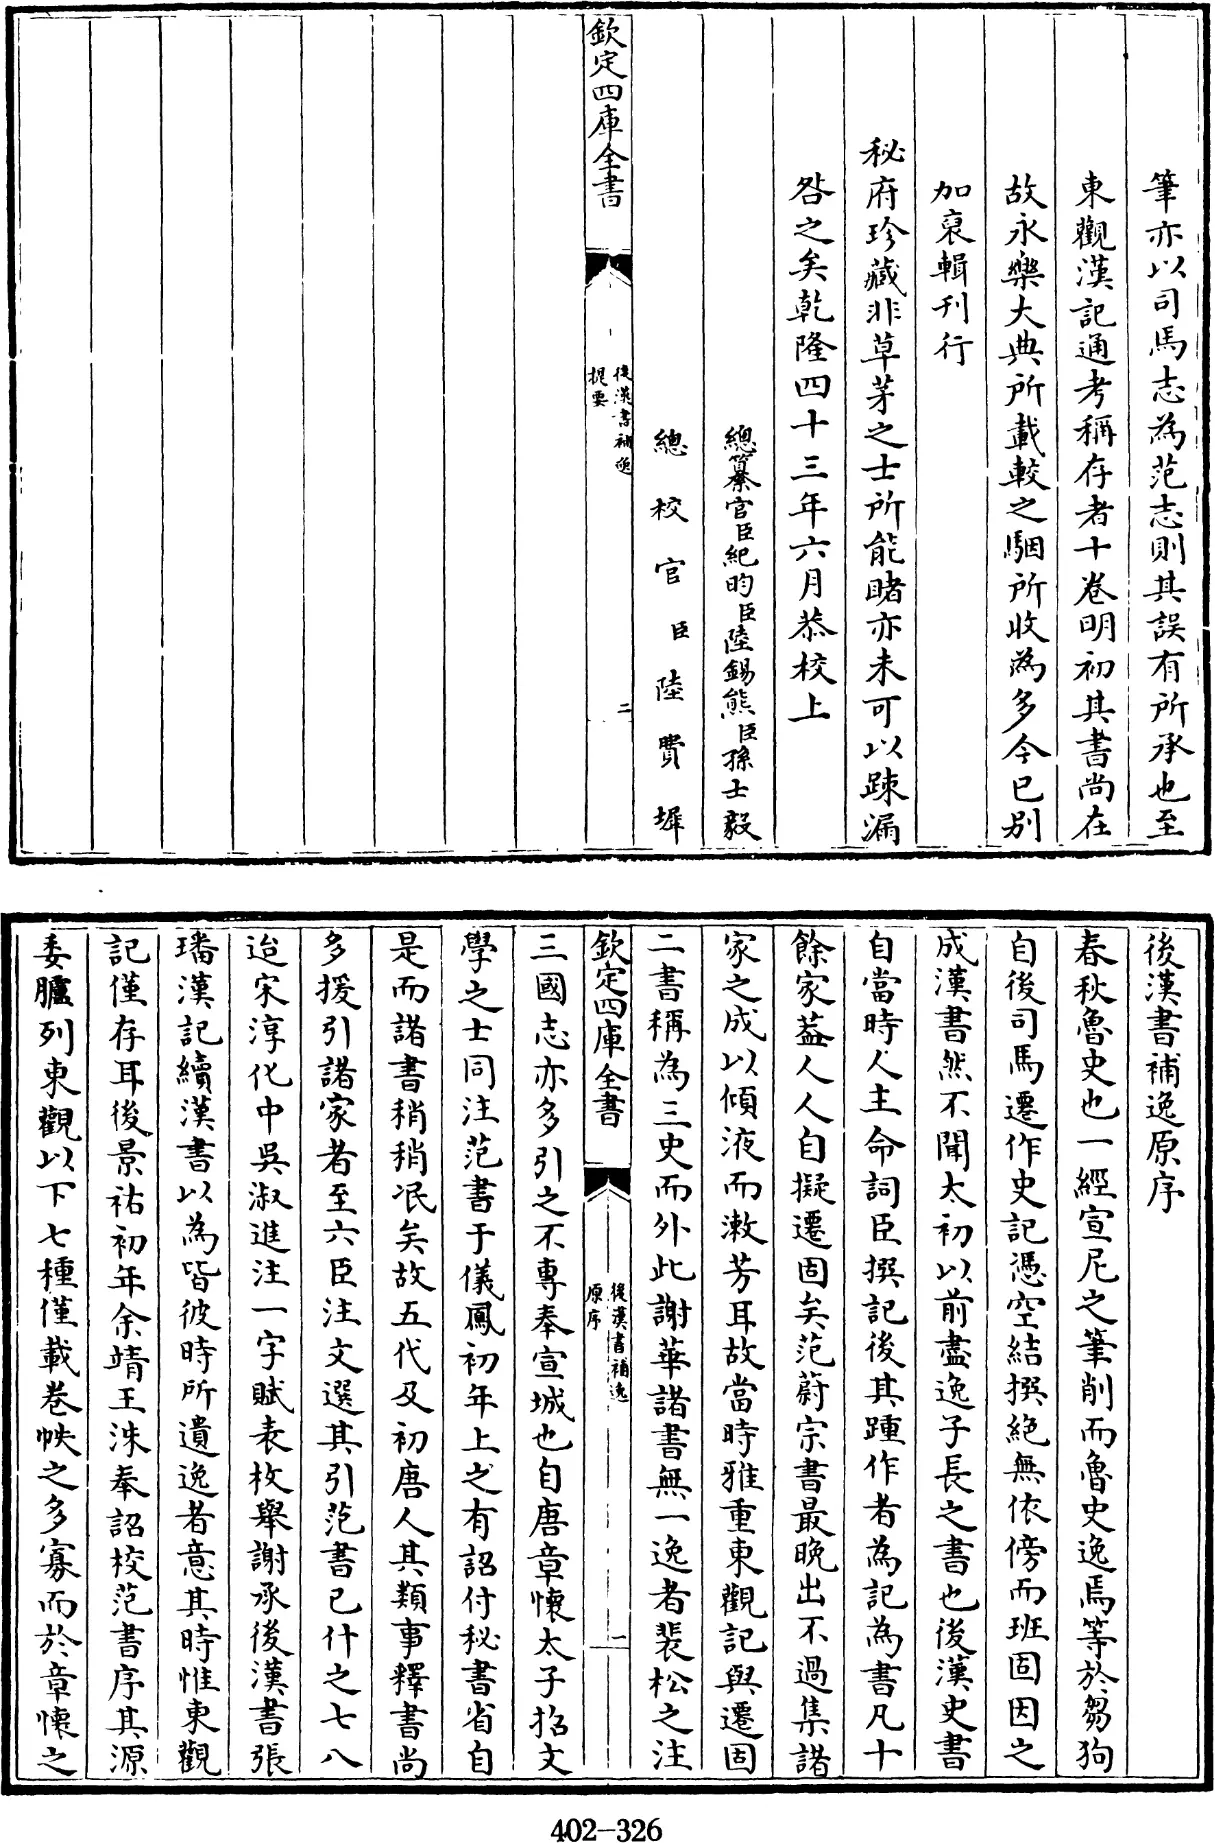 筆亦以司馬志為范志則其誤有所承也至
東觀漢記通考稱存者十卷明初其書尚在
故永樂大典所載較之駰所收為多今已別
加裒輯刊行
秘府珍藏非草茅之士所能睹亦未可以踈漏
咎之矣乾隆四十三年六月恭校上
總纂官臣紀昀臣陸錫熊臣孫士毅
總校官臣陸費墀
欽定四庫全書
後漢書補逸
提要
二
後漢書補逸原序
春秋魯史也一經宣尼之筆削而魯史逸焉等於芻狗
自後司馬遷作史記憑空結撰絕無依傍而班固因之
成漢書然不聞太初以前盡逸子長之書也後漢史書
自當時人主命詞臣撰記後其踵作者為記為書凡十
餘家葢人人自擬遷固矣范蔚宗書最晚出不過集諸
家之成以傾液而漱芳耳故當時雅重東觀記與遷固
二書稱為三史而外此謝華諸書無一逸者裴松之注
欽定四庫全書
後漢書補逸
原序
一
三國志亦多引之不專奉宣城也自唐章懷太子招文
學之士同注范書于儀鳳初年上之有詔付秘書省自
是而諸書稍稍冺矣故五代及初唐人其類事釋書尚
多援引諸家者至六臣注文選其引范書已什之七八
迨宋淳化中吳淑進注一字賦表枚舉謝承後漢書張
璠漢記續漢書以為皆彼時所遺逸者意其時惟東觀
記僅存耳後景祐初年余靖王洙奉詔校范書序其源
委臚列東觀以下七種僅載卷帙之多寡而於章懷之
402-326